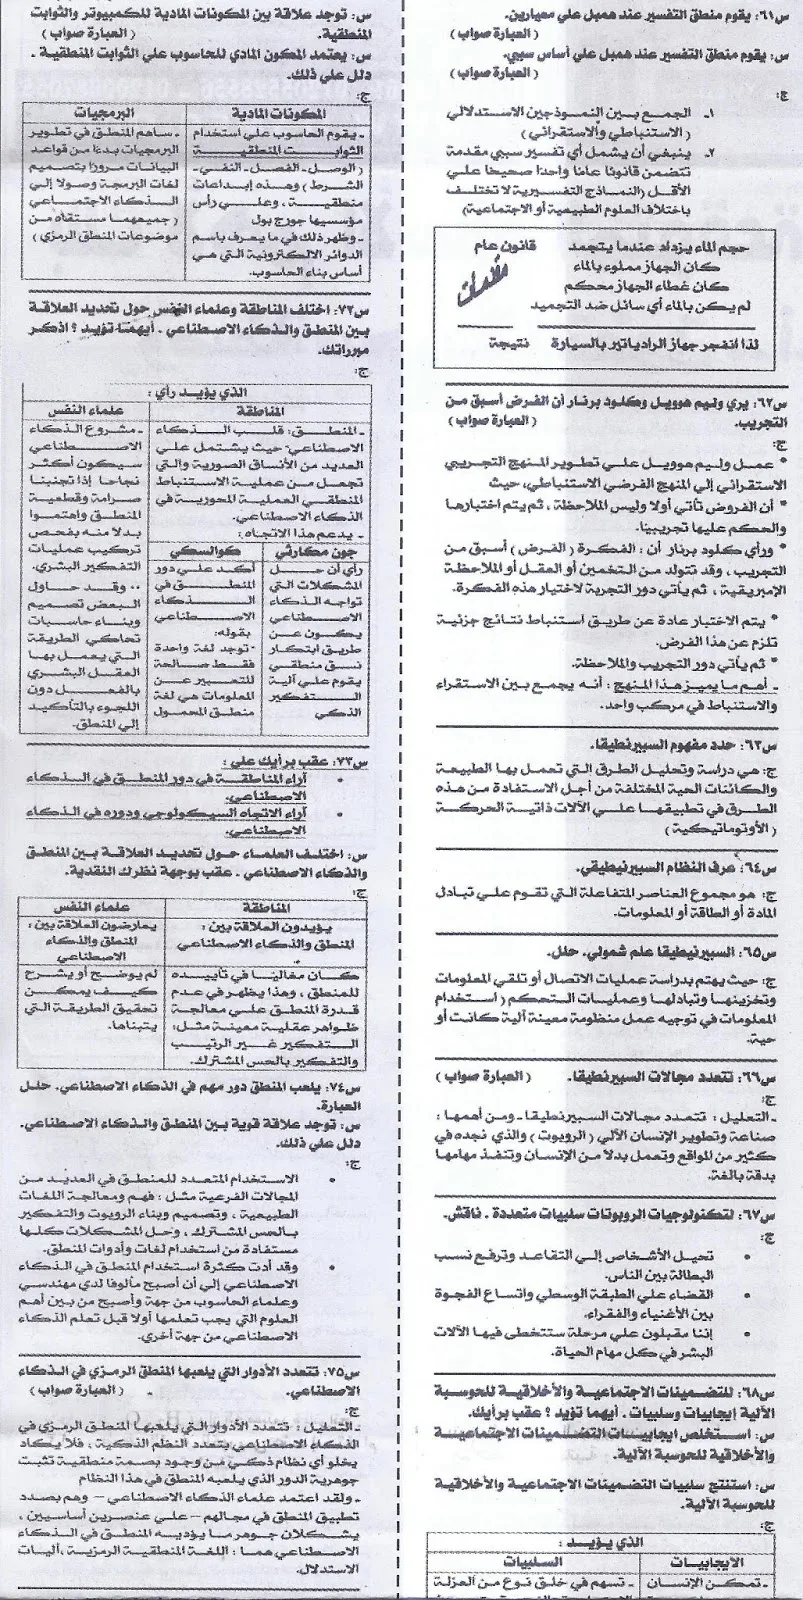 س٦١: يقوم منطق التفسير عند همبل علي معيارين.
( العبارة صواب )
س: يقوم منطق التفسير عند همبل علي أساس سببي.
( العبارة صواب )
ج:
١- الجمع بين النموذجين الاستدلالي
( الاستنباطي والاستقرائي )
٢- ينبغي أن يشمل أي تفسير سببي مقدمة
تتضمن قانونًا عامًا واحدًا صحيحًا علي
الأقل (النماذج التفسيرية لا تختلف
باختلاف العلوم الطبيعية أو الاجتماعية)
حجم الماء يزداد عندما يتجمد قانون عام
كان الجهاز مملوء بالماء
كان غطاء الجهاز محكم
لم يكن بالماء أي سائل ضد التجميد
مقدمات
لذا انفجر جهاز الرادياتير بالسيارة نتيجة
س٦٢: يري وليم هوويل وكلود برنار أن الفرض أسبق من
التجريب. ( العبارة صواب )
ج:
* عمل وليم هوويل علي تطوير المنهج التجريبي
الاستقرائي إلي المنهج الفرضي الاستنباطي، حيث
* أن الفروض تأتي أولا وليس الملاحظة ، ثم يتم اختبارها
والحكم عليها تجريبيًا.
* ورأي كلود برنار أن : الفكرة ( الفرض ) أسبق من
التجريب ، وقد تتولد من التخمين أو العقل أو الملاحظة
الإمبريقية ، ثم يأتي دور التجربة لاختبار هذه الفكرة.
* يتم الاختبار عادة عن طريق استنباط نتائج جزئية
تلزم عن هذا الفرض.
* ثم يأتي دور التجريب والملاحظة.
- أهم ما يميز هذا المنهج : أنه يجمع بين الاستقراء
والاستنباط في مركب واحد.
س٦٣: حدد مفهوم السيبرنطيقا.
ج: هي دراسة وتحليل الطرق التي تعمل بها الطبيعة
والكائنات الحية المختلفة من أجل الاستفادة من هذه
الطرق في تطبيقها علي الآلات ذاتية الحركة
( الأوتوماتيكية )
س٦٤: عرف النظام السيبرنيطيقي.
ج: هو مجموع العناصر المتفاعلة التي تقوم علي تبادل
المادة أو الطاقة أو المعلومات.
س٦٥: السيبرنيطيقا علم شمولي. حلل.
ج: حيث يهتم بدراسة عمليات الاتصال أو تلقي المعلومات
وتخزينها وتبادلها وعمليات التحكم ( استخدام
المعلومات في توجيه عمل منظومة معينة آلية كانت أو
حية.
س٦٦: تتعدد مجالات السيبرنطيقا. ( العبارة صواب )
ج:
- التعليل : تتعدد مجالات السيبرنطيقا - ومن أهمها :
صناعة وتطوير الإنسان الآلي ( الروبوت ) والذي نجده في
كثير من المواقع وتعمل بدلا من الإنسان وتنفذ مهامها
بدقة بالغة.
س٦٧: لتكنولوجيات الروبوتات سلبيات متعددة . ناقش.
ج:
• تحيل الأشخاص إلي التقاعد وترفع نسب
البطالة بين الناس.
• القضاء علي الطبقة الوسطي واتساع الفجوة
بين الأغنياء والفقراء.
• إننا مقبلون علي مرحلة ستتخطى فيها الآلات
البشر في كل مهام الحياة.
س٦٨: للتضمينات الاجتماعية والأخلاقية للحوسبة
الآلية إيجابيات وسلبيات . أيهما تؤيد ؟ عقب برأيك.
س: استخلص ايجابيات التضمينات الاجتماعية
والأخلاقية للحوسبة الآلية.
س: استنتج سلبيات التضمينات الاجتماعية والأخلاقية
للحوسبة الآلية.
ج:
الذي يؤيد :
الايجابيات السلبيات
- تمكن الإنسان - تسهم في خلق نوع من العزلة
س: توجد علاقة بين المكونات المادية للكمبيوتر والثوابت
المنطقية. ( العبارة صواب )
س: يعتمد المكون المادي للحاسوب علي الثوابت المنطقية .
دلل علي ذلك.
ج:
المكونات المادية البرمجيات
- يقوم الحاسوب علي استخدام - ساهم المنطق في تطوير
الثوابت المنطقية البرمجيات بدءًا من قواعد
( الوصل - الفصل - النفي - البيانات مرورًا بتصميم
الشرط ) وهذه إبداعات لغات البرمجة وصولا إلي
منطقية ، وعلي رأس الذكاء الاجتماعي
مؤسسيها جورج بول ( جميعهما مستقاه من
- وظهر ذلك في ما يعرف باسم موضوعات المنطق الرمزي )
الدوائر الالكترونية التي هي
أساس بناء الحاسوب.
س٧٢: اختلف المناطقة وعلماء النفس حول تحديد العلاقة
بين المنطق والذكاء الاصطناعي . أيهما تؤيد ؟ اذكر
مبرراتك.
ج:
الذي يؤيد رأي :
المناطقة
- المنطق : قلب الذكاء
الاصطناعي حيث يشتمل علي
العديد من الأنساق الصورية والتي
تجعل من عملية الاستنباط
المنطقي العملية المحورية في
الذكاء الاصطناعي.
- يدعم هذا الاتجاه :
جون مكارثي
رأي أن حل
المشكلات التي
تواجه الذكاء
الاصطناعي
يكون عن
طريق ابتكار
نسق منطقي
يقوم علي آلية
التفكير
الذكي
كوالسكي
أكد علي دور
المنطق في
الذكاء
الاصطناعي
بقوله:
- توجد لغة واحدة
فقط صالحة
للتعبير عن
المعلومات هي لغة
منطق المحمول
علماء النفس
- مشروع الذكاء
الاصطناعي
سيكون أكثر
نجاحا إذا تجنبنا
صرامة وقطعية
المنطق واهتموا
بدلا منه بفحص
تركيب عمليات
التفكير البشري.
.. وقد حاول
البعض تصميم
وبناء حاسبات
تحاكي الطريقة
التي يعمل بها
العقل البشري
بالفعل دون
اللجوء بالتأكيد
إلي المنطق.
س٧٣: عقب برأيك علي :
• آراء المناطقة في دور المنطق في الذكاء
الاصطناعي.
• آراء الاتجاه السيكولوجي ودوره في الذكاء
الاصطناعي.
س: اختلف العلماء حول تحديد العلاقة بين المنطق
والذكاء الاصطناعي . عقب بوجهة نظرك النقدية.
ج:
المناطقة
يؤيدون العلاقة بين :
المنطق والذكاء الاصطناعي
كان مغاليًا في تأييده
للمنطق ، وهذا يظهر في عدم
قدرة المنطق علي معالجة
ظواهر عقلية معينة مثل :
التفكير غير الرتيب
والتفكير بالحس المشترك.
علماء النفس
يعارضون العلاقة بين :
المنطق والذكاء
الاصطناعي
لم يوضح أو يشرح
كيف يمكن
تحقيق الطريقة التي
يتبناها.
س٧٤: يلعب المنطق دور مهم في الذكاء الاصطناعي. حلل
العبارة.
س: توجد علاقة قوية بين المنطق والذكاء الاصطناعي.
دلل علي ذلك.
ج:
• الاستخدام المتعدد للمنطق في العديد من
المجالات الفرعية مثل : فهم ومعالجة اللغات
الطبيعية ، وتصميم وبناء الروبوت والتفكير
بالحس المشترك ، وحل المشكلات كلها
مستفادة من استخدام لغات وأدوات المنطق.
• وقد أدت كثرة استخدام المنطق في الذكاء
الاصطناعي إلي أن أصبح مألوفا لدي مهندسي
وعلماء الحاسوب من جهة وأصبح من بين أهم
العلوم التي يجب تعلمها أولا قبل تعلم الذكاء
الاصطناعي من جهة أخري.
س٧٥: تتعدد الأدوار التي يلعبها المنطق الرمزي في الذكاء
الاصطناعي. ( العبارة صواب )
ج:
- التعليل : تتعدد الأدوار التي يلعبها المنطق الرمزي في
الذكاء الاصطناعي بتعدد النظم الذكية ، فلا يكاد
يخلو أي نظام ذكي من وجود بصمة منطقية تثبت
جوهرية الدور الذي يلعبه المنطق في هذا النظام
- ولقد اعتمد علماء الذكاء الاصطناعي – وهم بصدد
تطبيق المنطق في مجالهم – علي عنصرين أساسيين ،
يشكلان جوهر ما يؤديه المنطق في الذكاء
الاصطناعي هما : اللغة المنطقية الرمزية ، آليات
الاستدلال.